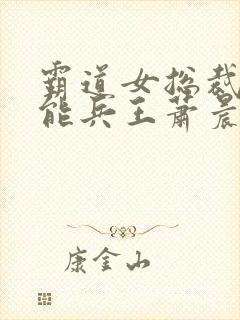 霸道女总裁
能兵王萧晨
康金山